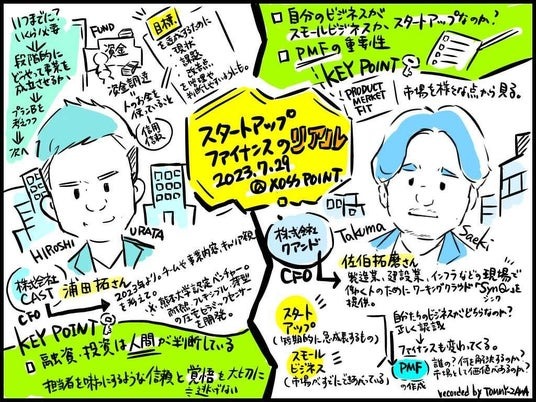 いつまでに?
いくら必要
段階的に
どうやって事業を
成立させるか
プラン
考えつつ
次へ
FUND
資金
資金調達
人のお金を
使っていること
信用
信頼
目標
を達成するために
現状
課題
改善点
を整理し
自分のビジネスが
スモールビジネスか、スタートアップなのか?
PMFの重要性
KEY POINT
PRODUCT
MERKET
FIT
市場を様々な点から見る。
スタートアップ
ファイナンスのリアル
2023.7.29
@XOSS POINT
HIROSHI URATA
株式会社
CAST
CFO
浦田拓さん
2023年より。チームや事業内容、キャリア観
を考えて
※熊本大学認定ベンチャー。
耐熱、フレキシブル、薄型
の圧電センサー
を開発。
KEY POINT
融資・投資は人間が判断している
担当者を味方にするような信頼と覚悟を大切に
逃げない
Takuma Saeki
株式会社
クアンド
CFO
佐伯拓磨さん
製造業、建設業、インフラなどの現場で
働く人のためにワーキングクラウド「SynQ」を
シンク
提供。
スタート
アップ
(短期的に急成長するもの)
スモール
ビジネス
(市場がすでにできあがっている)
自分たちのビジネスがどちらなのか?
正しく認識
ファイナンスも変わってくる。
PMF
の作成
誰の?何を解決するのか?
市場として価値があるのか?
recorded by